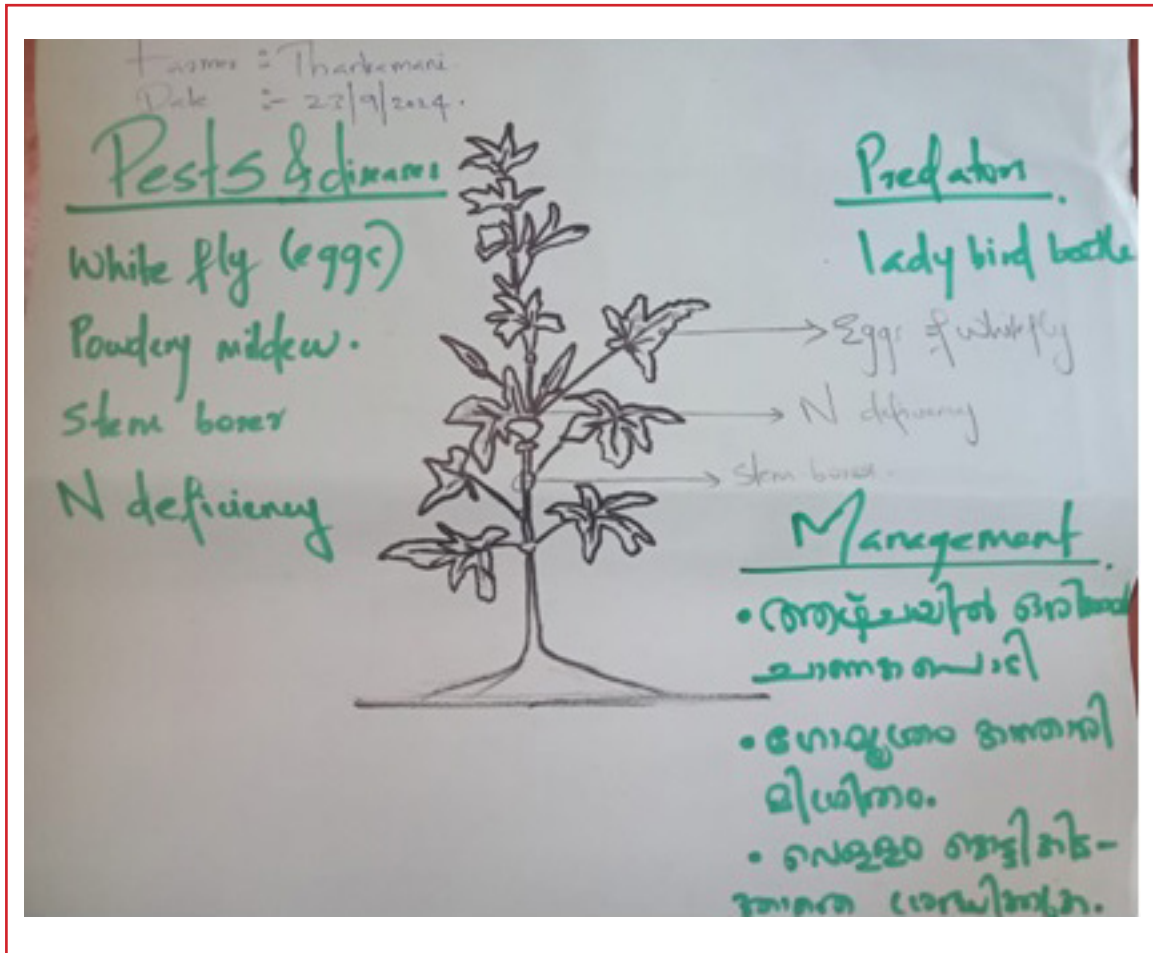 Farmer :- Thankamani
Date :- 23/9/2024.
Pests & diseases
White fly (eggs)
Powdery mildew.
Stem borer
N deficiency
Predators
lady bird beetle
Eggs of whitefly
N deficiency
Stem borer.
Management
• ആഴ്ചയിൽ
ചാണകപൊടി
• ഗോമൂത്രം കാന്താരി
മിശ്രിതം.
• വെള്ളം കെട്ടികിട-
ക്കാതെ ശ്രദ്ധിക്കുക.